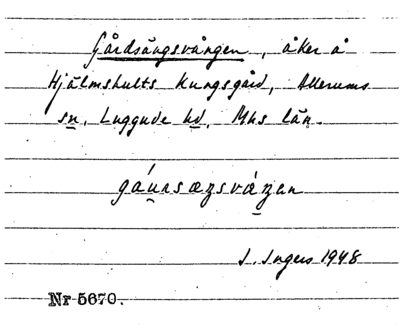 Gårdsängsvången, åker å
Hjälmshults Kungsgård, Allerums
sn, Luggude hd, Mhs län.
gáunsæŋsváŋan
I. Ingers 1948
Nr 5670.